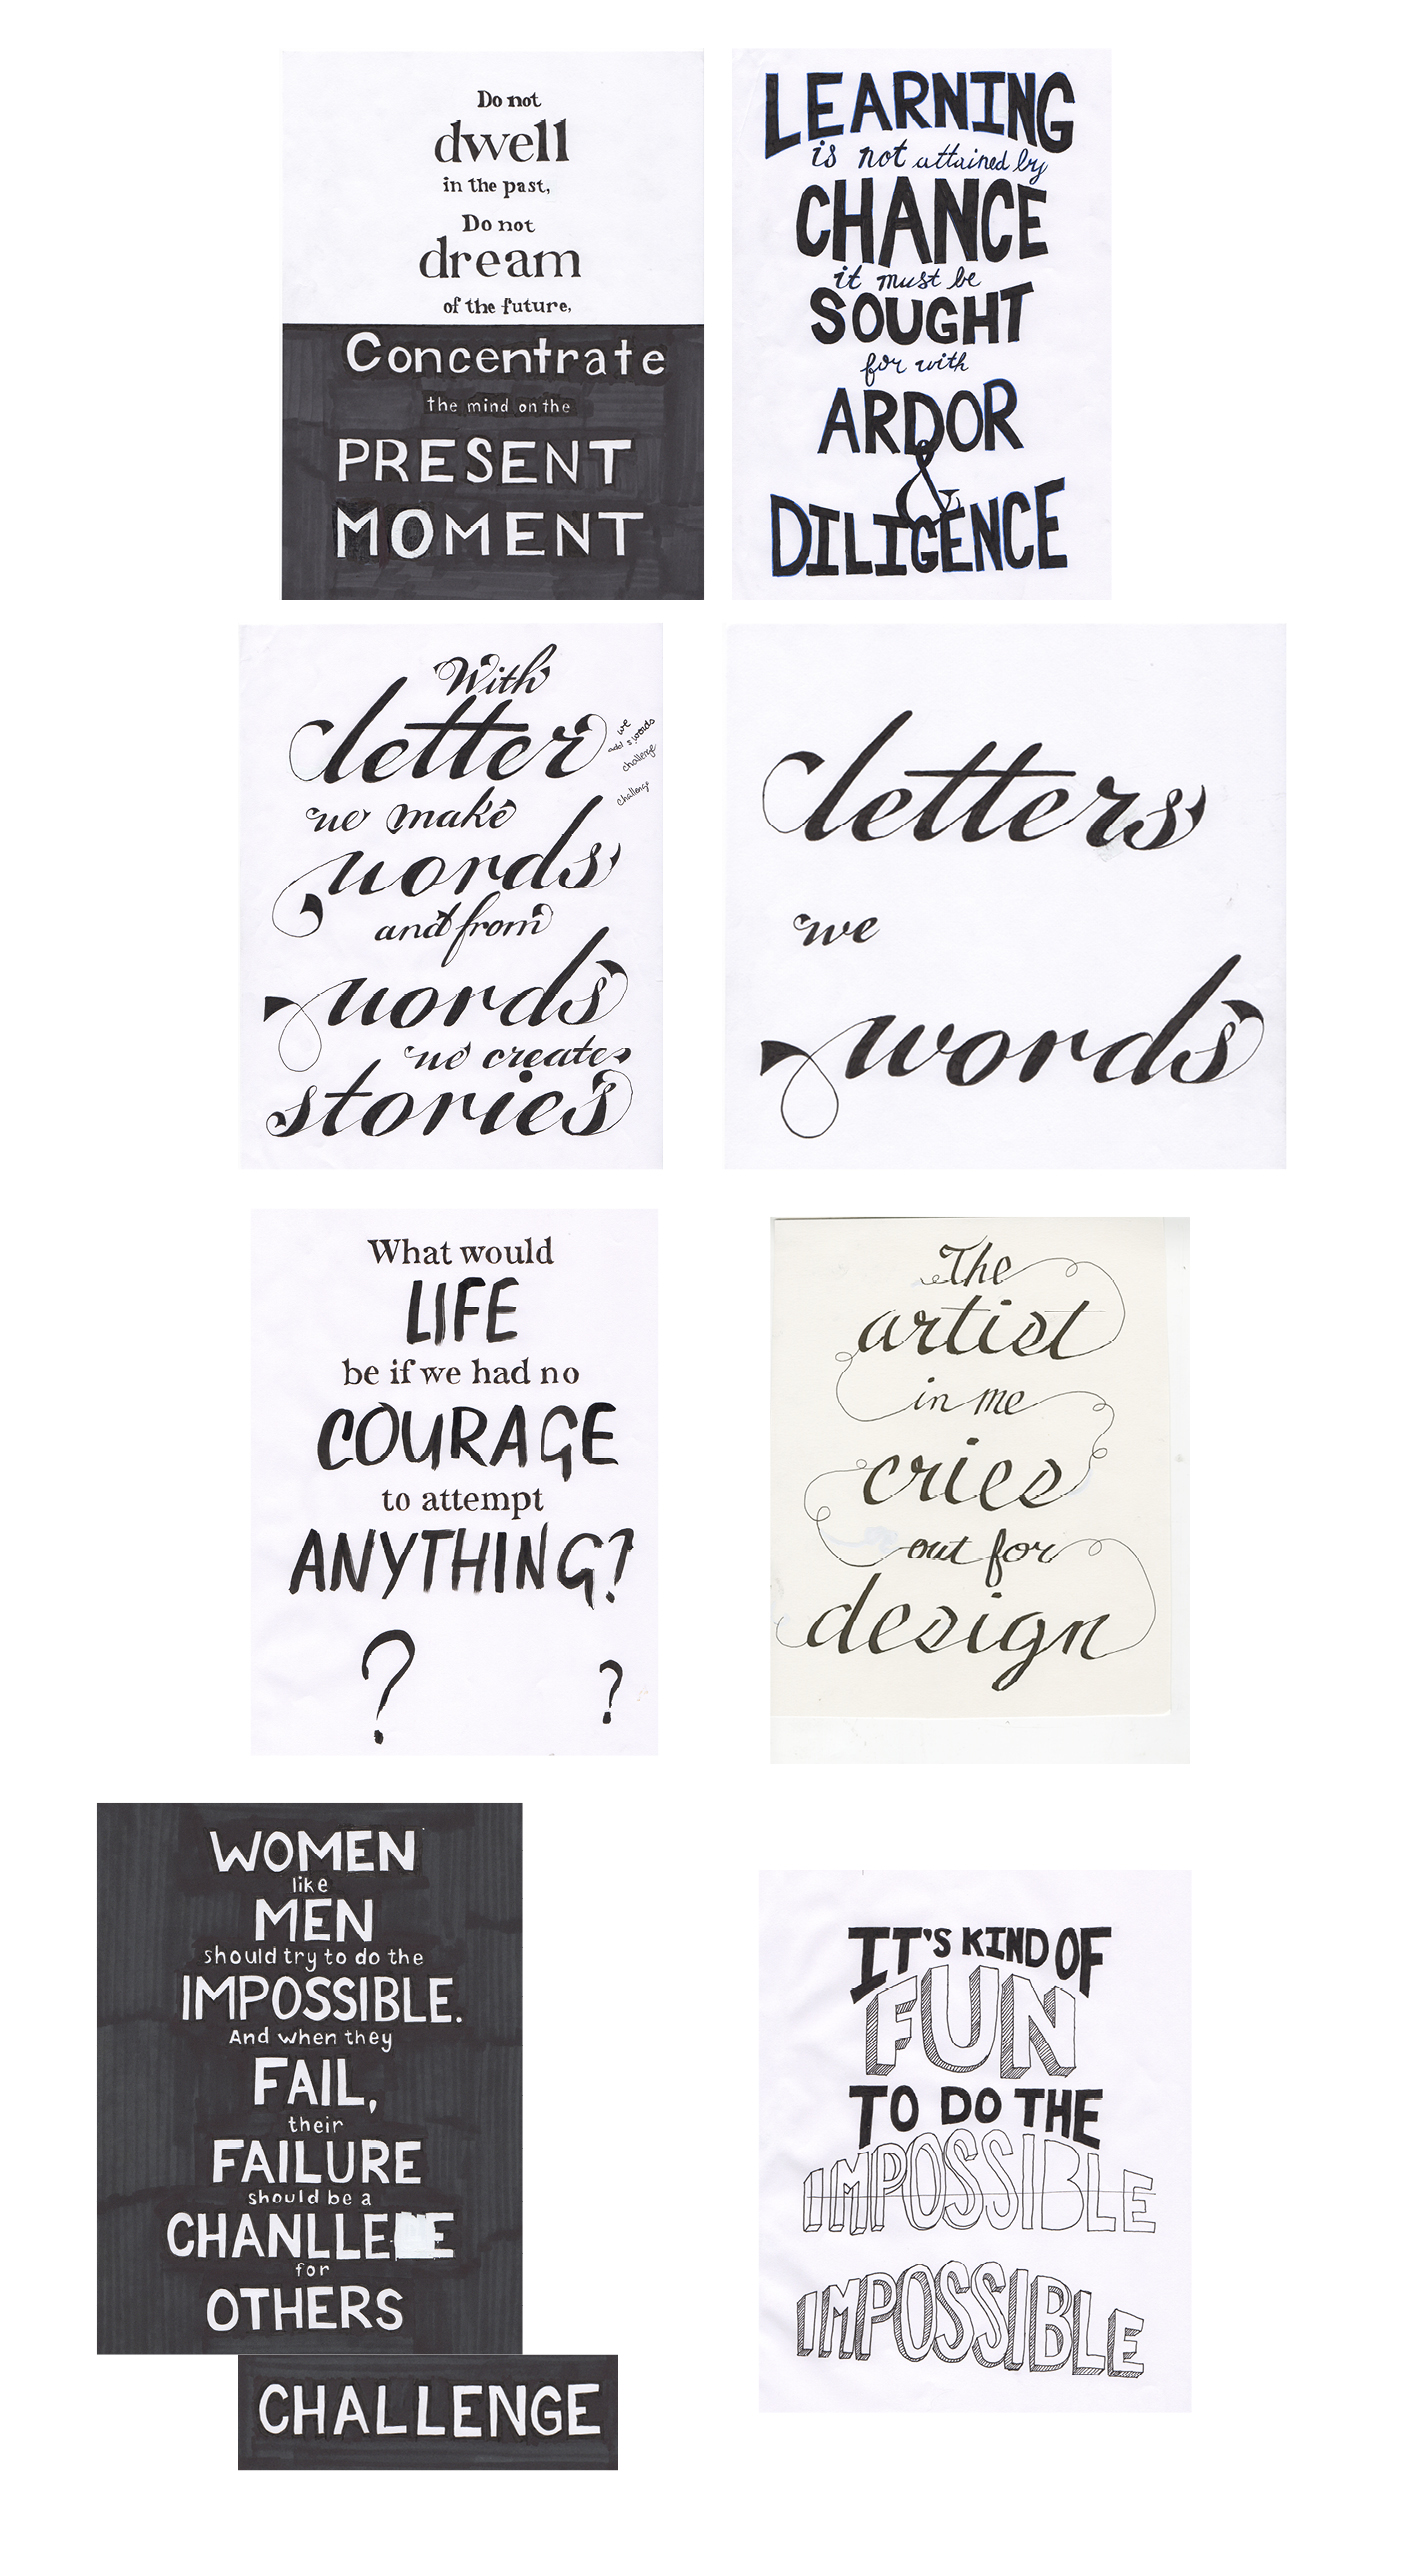 Do not
dwell
in the past,
Do not
dream
of the future,
Concentrate
the mind on the
PRESENT
MOMENT
LEARNING
is not attained by
CHANCE
it must be
SOUGHT
for with
ARDOR
&
DILIGENCE
With
letter
we make
words
and from
words
we create
stories
we
add s words
challenge
challenge
letters
we
words
What would
LIFE
be if we had no
COURAGE
to attempt
ANYTHING?
?
?
The
artist
in me
cries
out for
design
WOMEN
like
MEN
should try to do the
IMPOSSIBLE.
And when they
FAIL,
their
FAILURE
should be a
for
OTHERS
CHALLENGE
IT'S KIND OF
FUN
TO DO THE
IMPOSSIBLE
IMPOSSIBLE